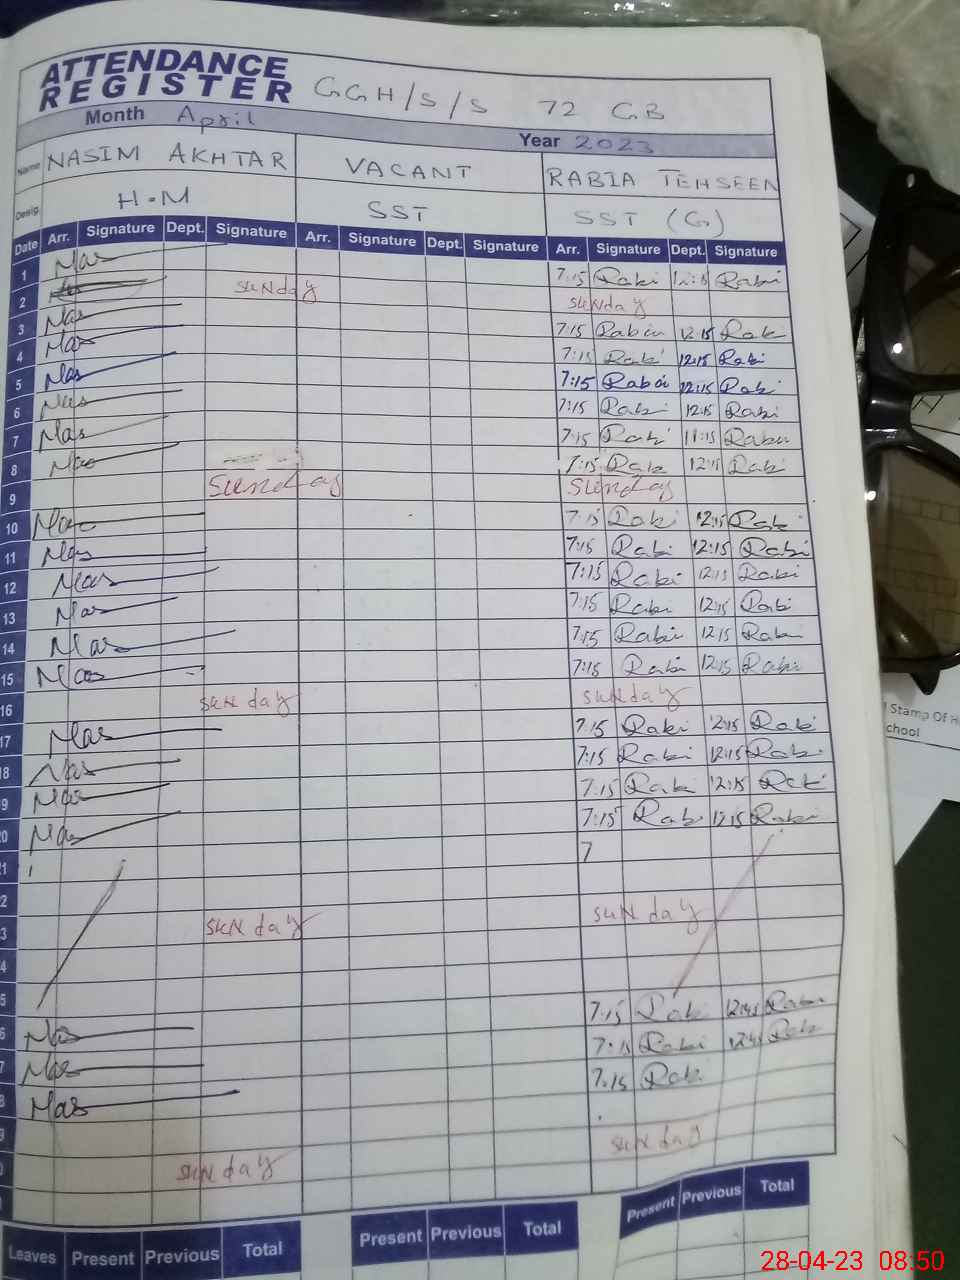 ATTENDANCE
REGISTER GGH/S/S 72 GB
Month April
Year 2023
Name NASIM AKHTAR VACANT RABIA TEHSEEN
Desig. H.M SST SST (G)
Date Arr. Signature Dept. Signature Arr. Signature Dept. Signature Arr. Signature Dept. Signature
1 Nas 7:15 Rabi 12:15 Rabi
2 SUNday SUNday
3 Nas 7:15 Rabia 12:15 Rabi
4 Nas 7:15 Rabi 12:15 Rabi
5 Nas 7:15 Rabia 12:15 Rabi
6 Nas 7:15 Rabi 12:15 Rabi
7 Nas 7:15 Rabi 11:15 Rabi
8 Nas 7:15 Rabi 12:15 Rabi
9 Sunday Sunday
10 Nas 7:15 Rabi 12:15 Rabi
11 Nas 7:15 Rabi 12:15 Rabi
12 Nas 7:15 Rabi 12:15 Rabi
13 Nas 7:15 Rabi 12:15 Rabi
14 Nas 7:15 Rabi 12:15 Rabi
15 Nas 7:15 Rabi 12:15 Rabi
16 SUNday SUNday
17 Nas 7:15 Rabi 12:15 Rabi
18 Nas 7:15 Rabi 12:15 Rabi
9 Nas 7:15 Rabi 12:15 Rabi
20 Nas 7:15 Rabi 12:15 Rabi
21 7
2
3 SUNday SUNday
4
5
6 Nas 7:15 Rabi 12:45 Rabi
7 Nas 7:15 Rabi 12:45 Rabi
8 Nas 7:15 Rabi
9
0 SUNday SUNday
Leaves Present Previous Total Present Previous Total Present Previous Total
Stamp Of H
chool
28-04-23 08:50